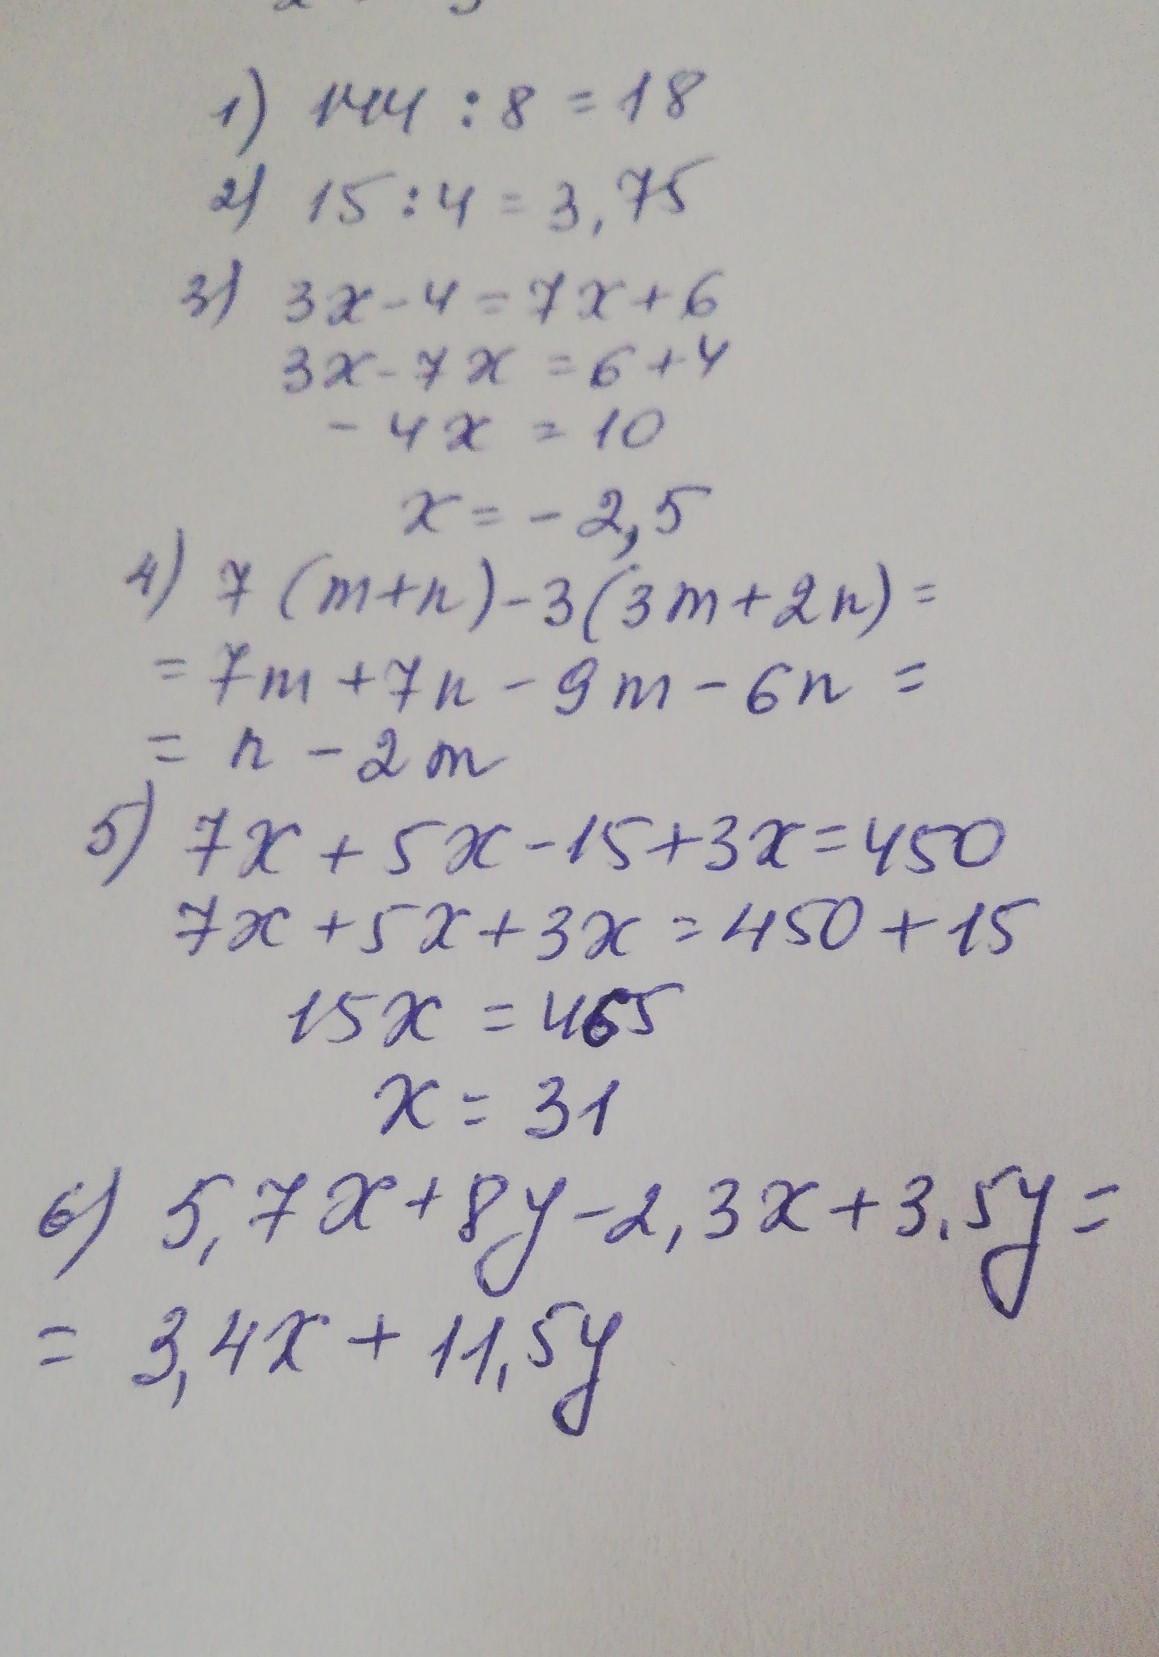 1) 144 : 8 = 18
2) 15 : 4 = 3,75
3) 3x - 4 = 7x + 6
3x - 7x = 6 + 4
- 4x = 10
x = - 2,5
4) 7 (m + n) - 3 (3m + 2n) =
= 7m + 7n - 9m - 6n =
= n - 2m
5) 7x + 5x - 15 + 3x = 450
7x + 5x + 3x = 450 + 15
15x = 465
x = 31
6) 5,7x + 8y - 2,3x + 3,5y =
= 3,4x + 11,5y